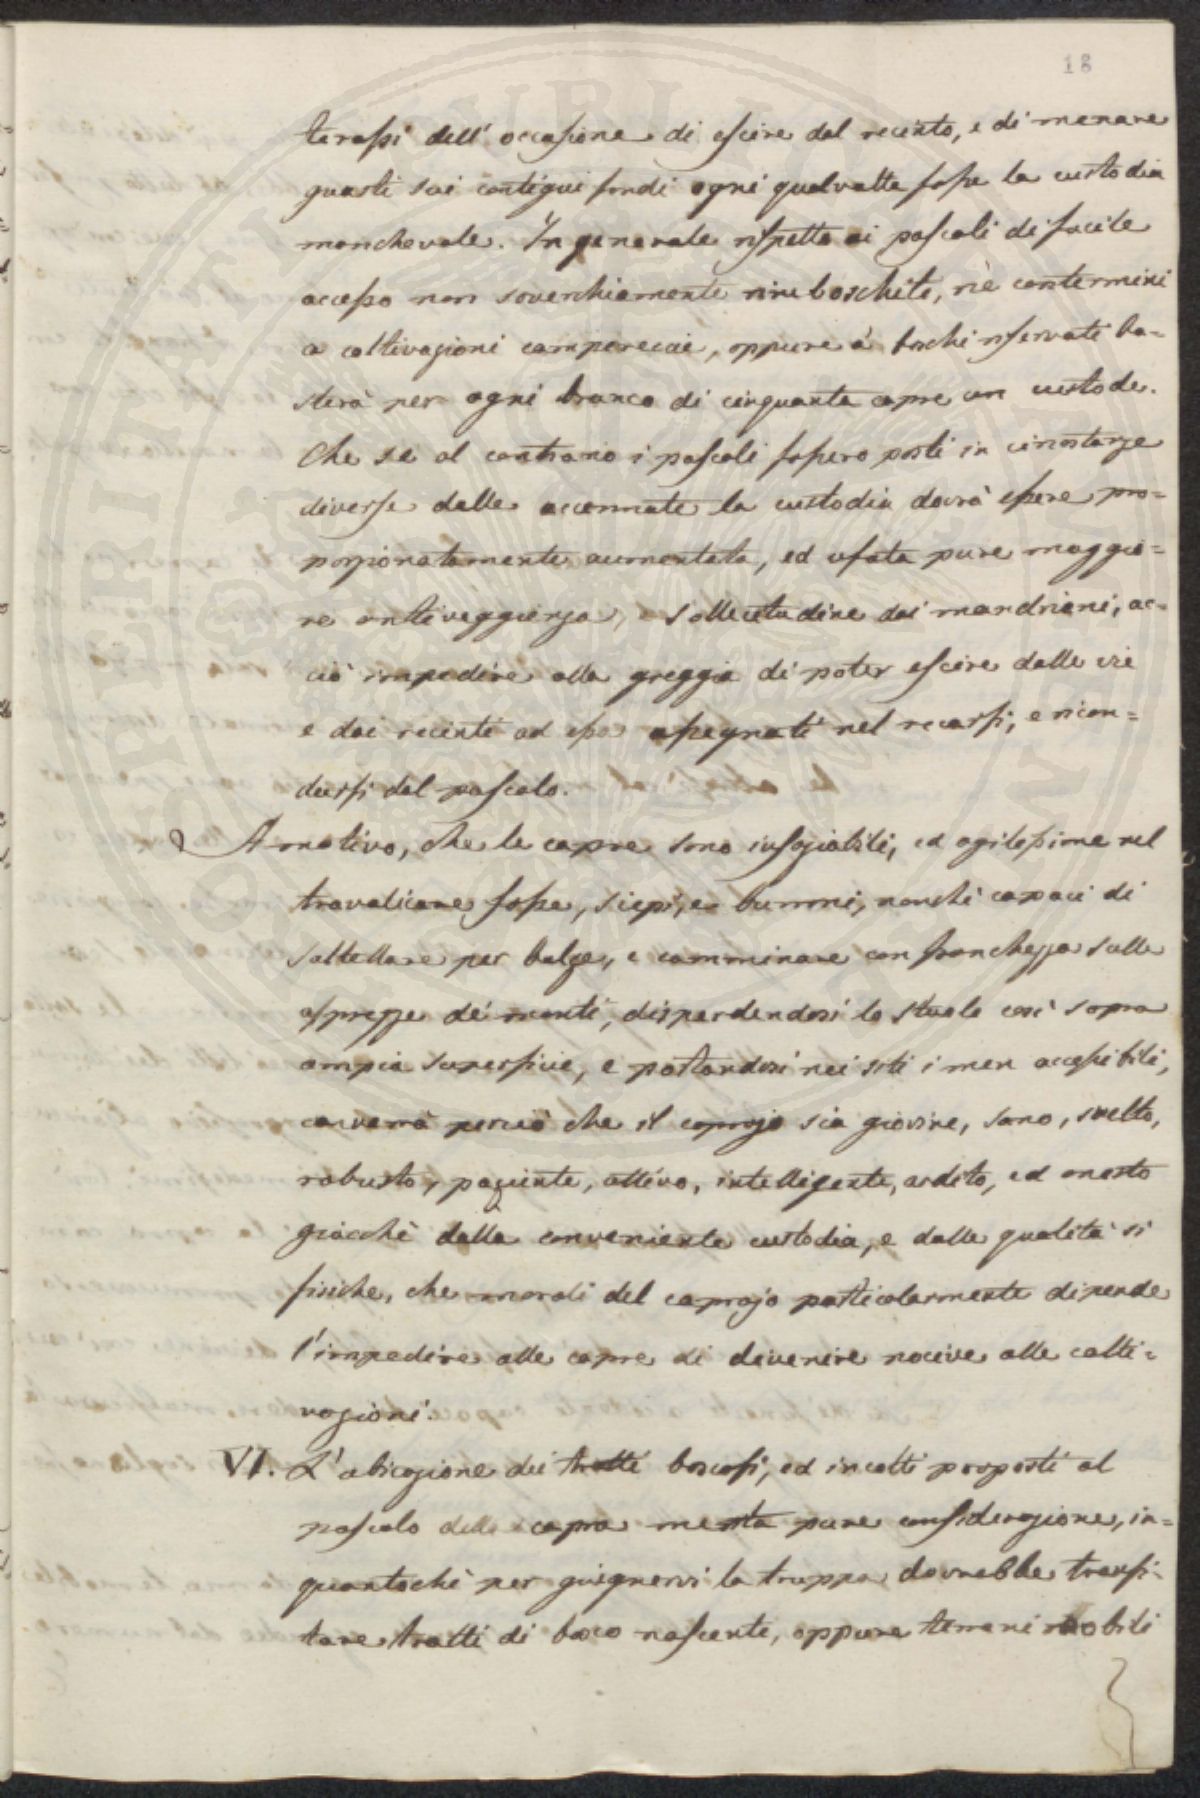 18
terassi dell' occasione di escire dal recinto, e di menare
guasti sui contigui fondi ogni qualvolta fosse la custodia
manchevole. In generale rispetto ai pascoli di facile
accesso non soverchiamente rimboschiti, nè contermini
a coltivazioni camperecie, oppure a boschi riservati ba=
sterà per ogni branco di cinquanta capre un custode.
Che se al contrario i pascoli fossero posti in circostanze
diverse dalle accennate la custodia dovrà essere pro=
porzionatamente aumentata, ed usata pure maggio=
re antiveggienza, e sollecitudine dai mandriani, ac=
ciò impedire alla greggia di poter escire dalle vie
e dai recinti ad essa assegnati nel recarsi, e ricon=
dursi dal pascolo.
A motivo, che le capre sono insaziabili, ed agilissime nel
travalicare fosse, siepi, e burroni, nonchè capaci di
saltellare per balze, e camminare con franchezza sulle
asprezze de' monti, disperdendosi lo stuolo così sopra
ampia superficie, e portandosi nei siti i men accessibili,
converrà perciò che il caprajo sia giovine, sano, svelto,
robusto, paziente, attivo, intelligente, ardito, ed onesto
giacchè dalla conveniente custodia, e dalle qualità sì
fisiche, che morali del caprajo particolarmente dipende
l'impedire alle capre di divenire nocive alle colti=
vazioni.
VI. L'ubicazione dei tratti boscosi, ed incolti proposti al
pascolo delle capre merita pure considerazione, in=
quantochè per giugnervi la truppa dovrebbe transi=
tare tratti di bosco nascente, oppure terreni mobili